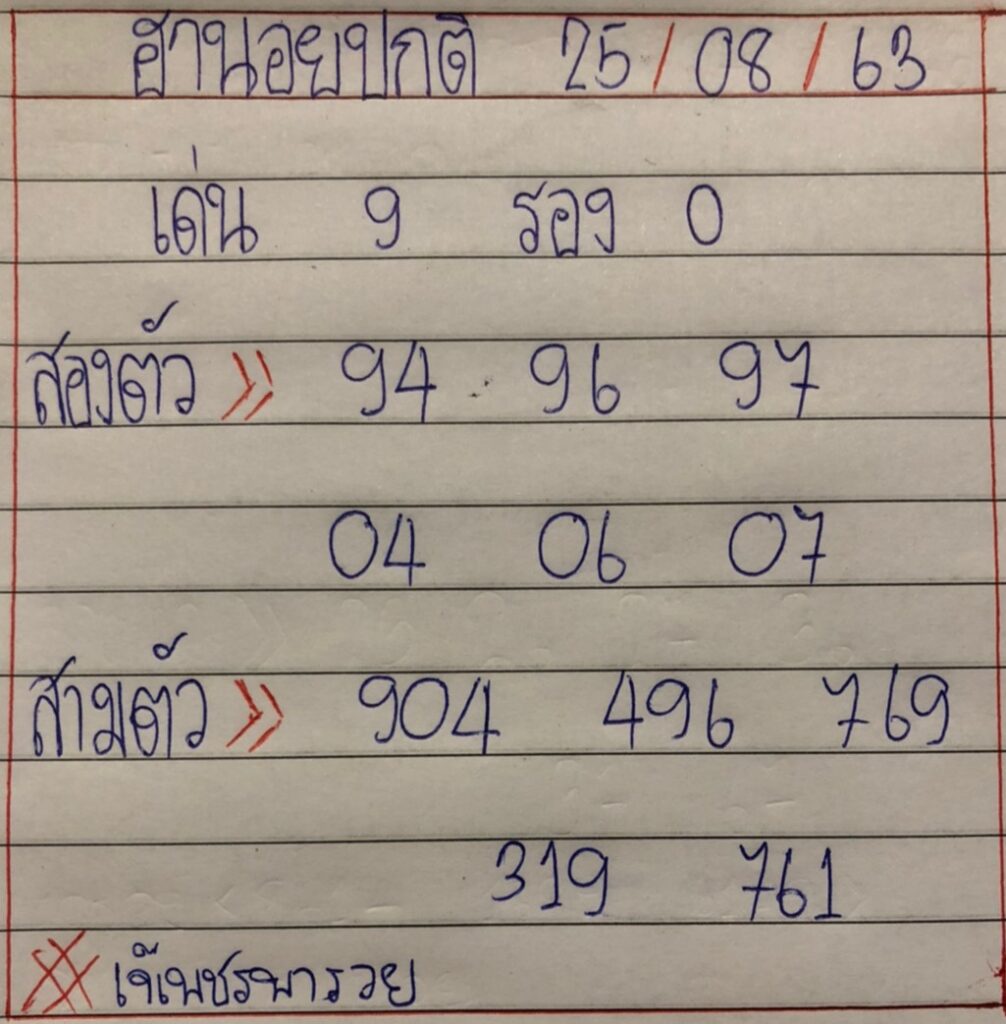 ฮานอยปกติ 25/08/63
เด่น 9 รอง 0
สองตัว >> 94 96 97
04 06 07
สามตัว >> 904 496 769
319 761
เจ๊เพชรพารวย